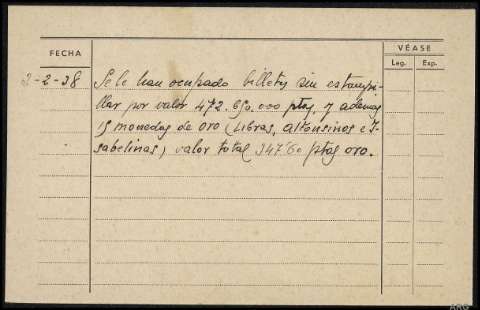 FECHA
VÉASE
Leg. Exp.
2-2-38 Se le han ocupado billetes sin estampi-
llar por valor 472.650.000 ptas. y ademas
15 monedas de oro (Libras, alfonsinos e I-
sabelinas) valor total 347'60 ptas oro.
ARG